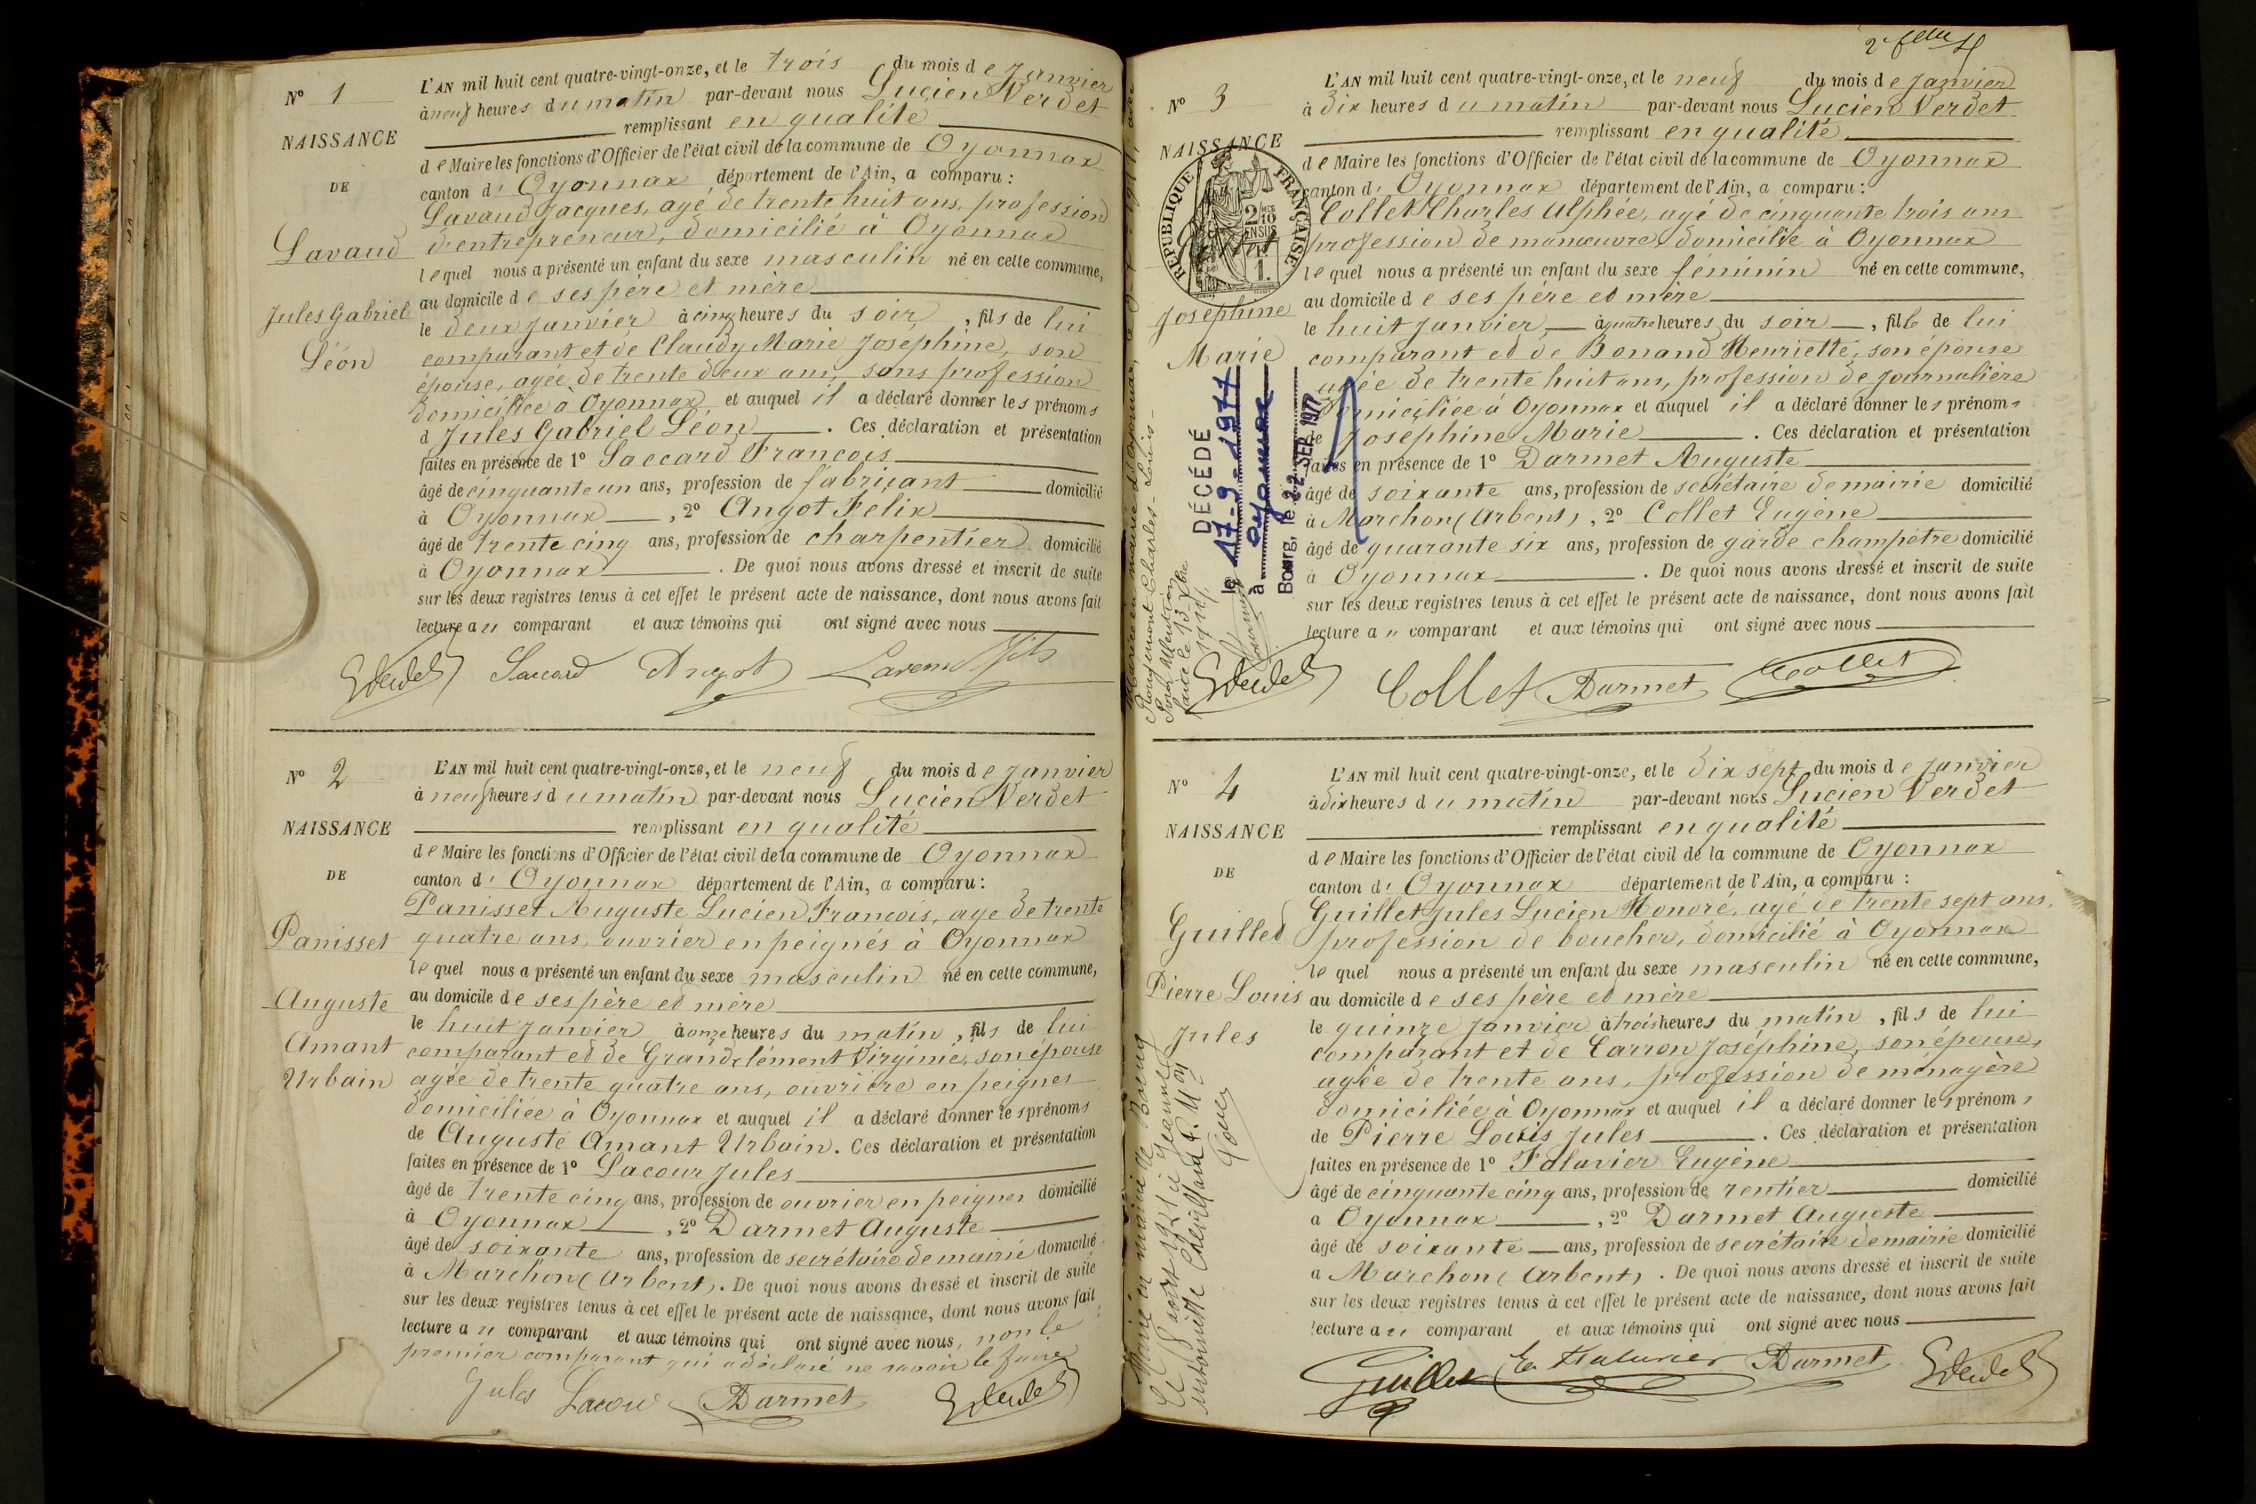 N° 1
NAISSANCE
DE
Lavaud
Jules Gabriel
Léon
L'AN mil huit cent quatre-vingt-onze, et le trois du mois de Janvier
à neuf heures du matin par-devant nous Lucien Verdet
remplissant en qualité
de Maire les fonctions d'Officier de l'état civil de la commune de Oyonnax
canton d' Oyonnax département de l'Ain, a comparu :
Lavaud Jacques, agé de trente huit ans, profession
d'entrepreneur, domicilié à Oyonnax
lequel nous a présenté un enfant du sexe masculin né en cette commune,
au domicile de ses père et mère
le deux Janvier à cinq heures du soir, fils de lui
comparant et de Claudy Marie Joséphine, son
épouse, agée de trente deux ans, sans profession
domiciliée à Oyonnax et auquel il a déclaré donner les prénoms
d Jules Gabriel Léon. Ces déclaration et présentation
faites en présence de 1° Saccard François
âgé de cinquante un ans, profession de fabricant domicilié
à Oyonnax, 2° Angot Felix
âgé de trente cinq ans, profession de charpentier domicilié
à Oyonnax. De quoi nous avons dressé et inscrit de suite
sur les deux registres tenus à cet effet le présent acte de naissance, dont nous avons fait
lecture au comparant et aux témoins qui ont signé avec nous
Saccard Angot
N° 2
NAISSANCE
DE
Panisset
Auguste
Amant
Urbain
L'AN mil huit cent quatre-vingt-onze, et le neuf du mois de Janvier
à neuf heures du matin par-devant nous Lucien Verdet
remplissant en qualité
de Maire les fonctions d'Officier de l'état civil de la commune de Oyonnax
canton d' Oyonnax département de l'Ain, a comparu :
Panisset Auguste Lucien François, age de trente
quatre ans, ouvrier en peignés à Oyonnax
lequel nous a présenté un enfant du sexe masculin né en cette commune,
au domicile de ses père et mère
le huit Janvier à onze heures du matin, fils de lui
comparant et de Grandclément Virginie, son épouse
agée de trente quatre ans, ouvrière en peignes
domiciliée à Oyonnax et auquel il a déclaré donner les prénoms
de Auguste Amant Urbain. Ces déclaration et présentation
faites en présence de 1° Lacour Jules
âgé de trente cinq ans, profession de ouvrier en peignes domicilié
à Oyonnax, 2° Darmet Auguste
âgé de soixante ans, profession de secrétaire de mairie domicilié
à Marchon (Arbent). De quoi nous avons dressé et inscrit de suite
sur les deux registres tenus à cet effet le présent acte de naissance, dont nous avons fait
lecture au comparant et aux témoins qui ont signé avec nous, non le
premier comparant qui a déclaré ne savoir le faire
Jules Lacour Darmet
N° 3
NAISSANCE
RÉPUBLIQUE FRANÇAISE
Joséphine
Marie
DÉCÉDÉ
le 17-9-1977
à Oyonnax
Bourg, le 22 SEP. 1977
L'AN mil huit cent quatre-vingt-onze, et le neuf du mois de Janvier
à dix heures du matin par-devant nous Lucien Verdet
remplissant en qualité
de Maire les fonctions d'Officier de l'état civil de la commune de Oyonnax
canton d' Oyonnax département de l'Ain, a comparu :
Collet Charles Alphée, agé de cinquante trois ans
profession de manœuvre, domicilié à Oyonnax
lequel nous a présenté un enfant du sexe féminin né en cette commune,
au domicile de ses père et mère
le huit Janvier à quatre heures du soir, fille de lui
comparant et de Bonand Henriette, son épouse
agée de trente huit ans, profession de journalière
domiciliée à Oyonnax et auquel il a déclaré donner les prénoms
de Joséphine Marie. Ces déclaration et présentation
faites en présence de 1° Darmet Auguste
âgé de soixante ans, profession de secrétaire de mairie domicilié
à Marchon (Arbent), 2° Collet Eugène
âgé de quarante six ans, profession de garde champêtre domicilié
à Oyonnax. De quoi nous avons dressé et inscrit de suite
sur les deux registres tenus à cet effet le présent acte de naissance, dont nous avons fait
lecture au comparant et aux témoins qui ont signé avec nous
Collet Darmet Collet
N° 4
NAISSANCE
DE
Guillet
Pierre Louis
Jules
L'AN mil huit cent quatre-vingt-onze, et le dix sept du mois de Janvier
à dix heures du matin par-devant nous Lucien Verdet
remplissant en qualité
de Maire les fonctions d'Officier de l'état civil de la commune de Oyonnax
canton d' Oyonnax département de l'Ain, a comparu :
Guillet Jules Lucien Honoré, agé de trente sept ans,
profession de boucher, domicilié à Oyonnax
lequel nous a présenté un enfant du sexe masculin né en cette commune,
au domicile de ses père et mère
le quinze Janvier à trois heures du matin, fils de lui
comparant et de Carron Joséphine, son épouse,
agée de trente ans, profession de ménagère
domiciliée à Oyonnax et auquel il a déclaré donner les prénoms
de Pierre Louis Jules. Ces déclaration et présentation
faites en présence de 1° Falavier Eugène
âgé de cinquante cinq ans, profession de rentier domicilié
à Oyonnax, 2° Darmet Auguste
âgé de soixante ans, profession de secrétaire de mairie domicilié
à Marchon (Arbent). De quoi nous avons dressé et inscrit de suite
sur les deux registres tenus à cet effet le présent acte de naissance, dont nous avons fait
lecture au comparant et aux témoins qui ont signé avec nous
Guillet Darmet